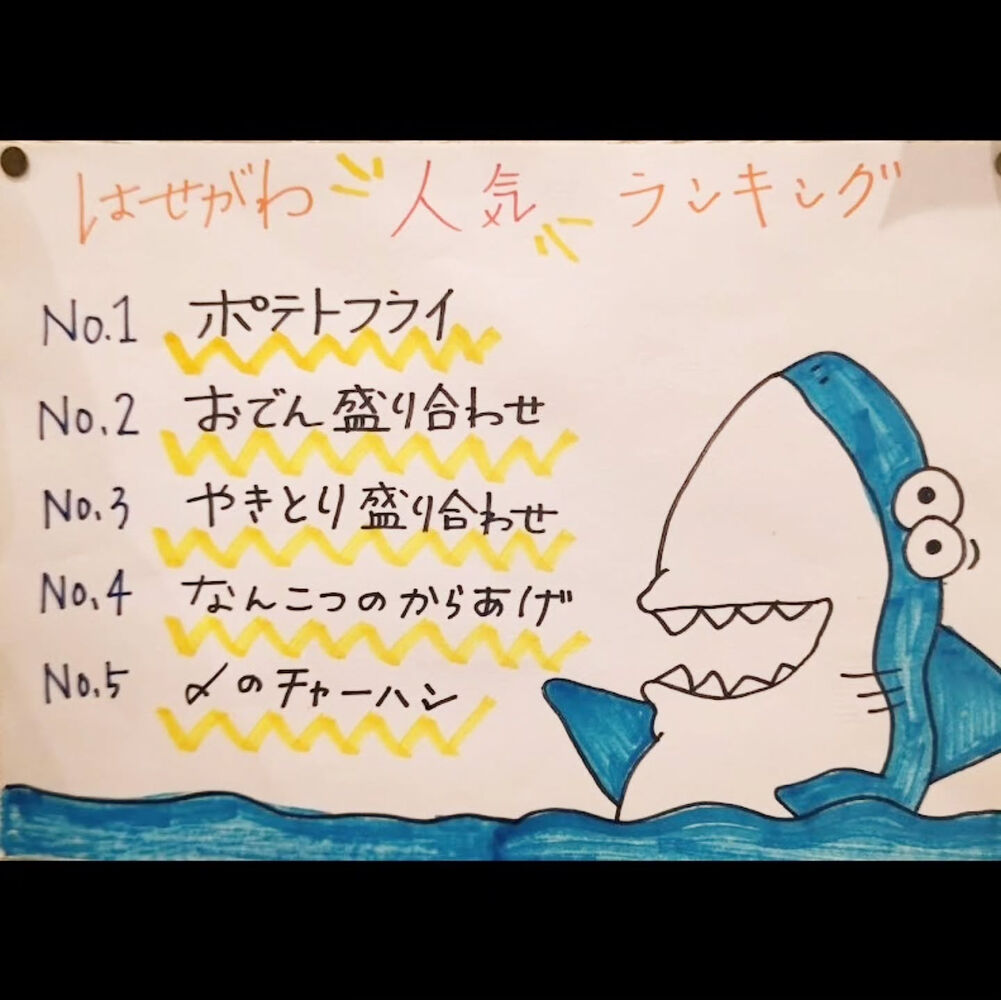 はせがわ 人気 ランキング
No.1 ポテトフライ
No.2 おでん盛り合わせ
No.3 やきとり盛り合わせ
No.4 なんこつのからあげ
No.5 〆のチャーハン